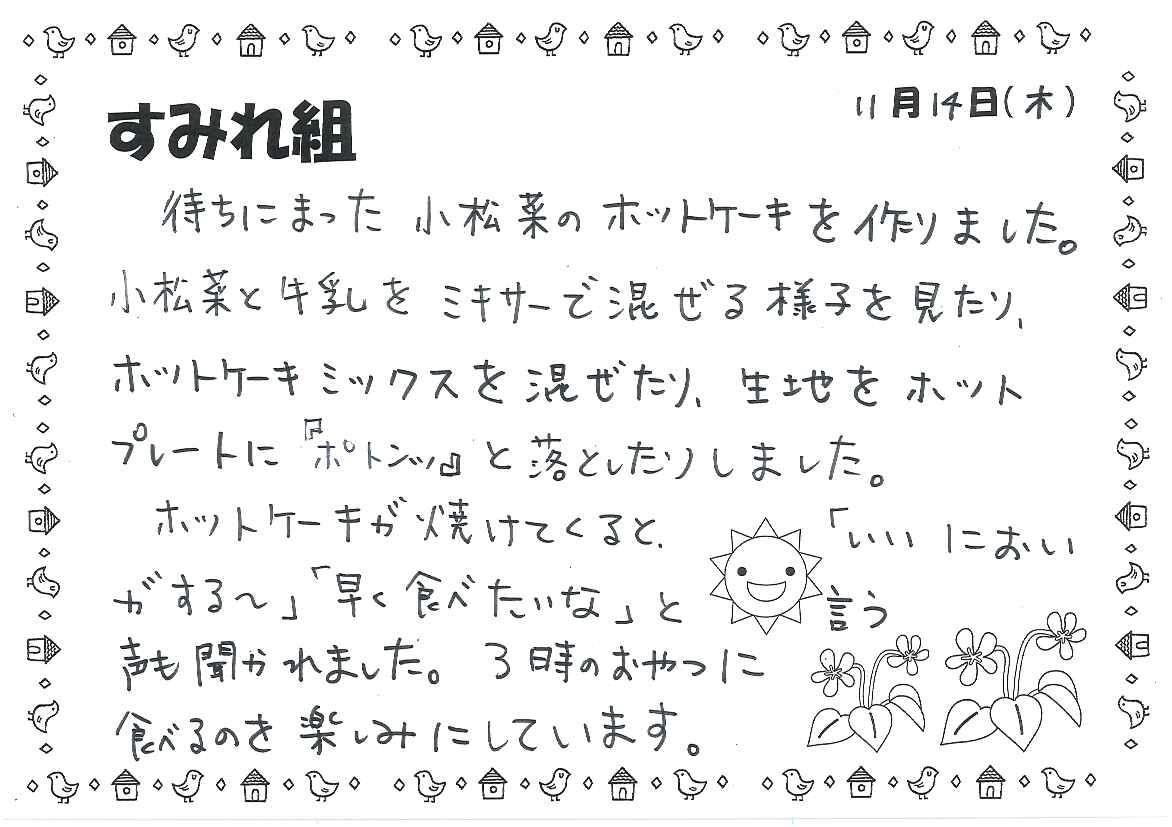 すみれ組
11月14日(木)
待ちにまった 小松菜の ホットケーキを作りました。
小松菜と牛乳を ミキサーで混ぜる様子を見たり、
ホットケーキミックスを混ぜたり、生地をホット
プレートに『ポトンッ』と落としたりしました。
ホットケーキが焼けてくると、「いいにおい
がする〜」「早く食べたいな」と 言う
声も聞かれました。3時のおやつに
食べるのを楽しみにしています。